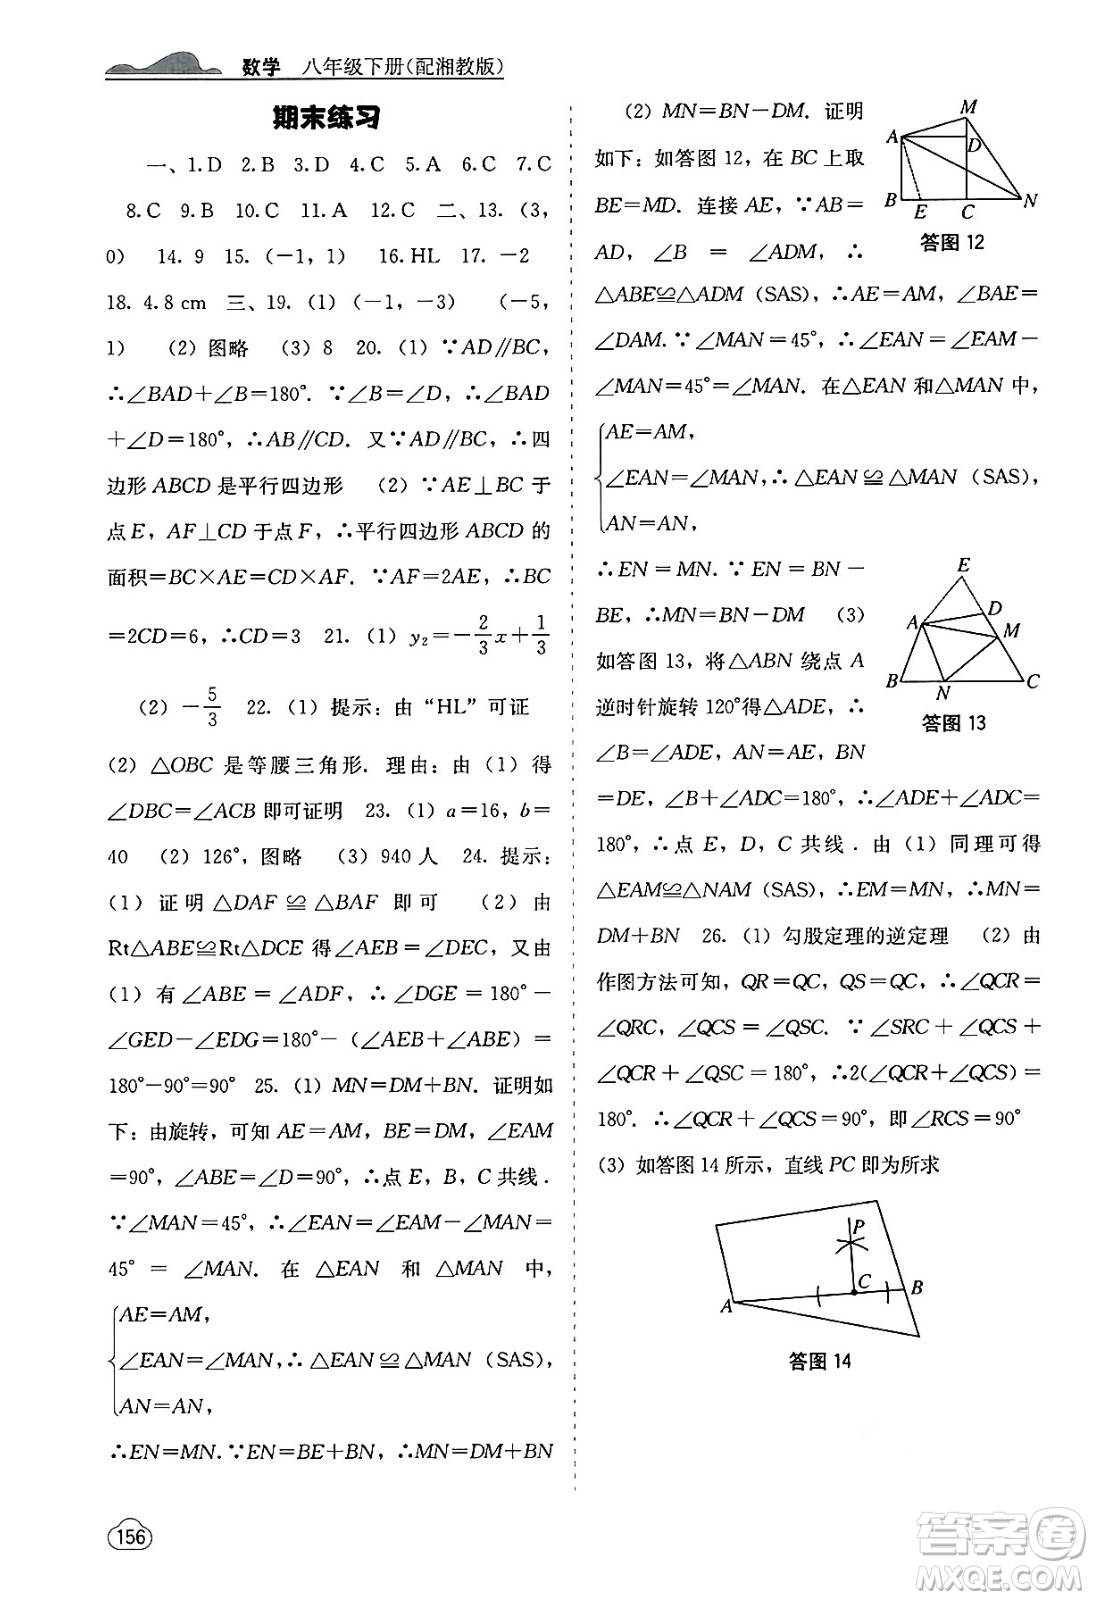 数学 八年级下册(配湘教版)
期末练习
一、1.D 2.B 3.D 4.C 5.A 6.C 7.C
8.C 9.B 10.C 11.A 12.C 二、13.(3,
0) 14. 9 15.(-1, 1) 16.HL 17. -2
18. 4.8 cm 三、19.(1)(-1, -3) (-5,
1) (2)图略 (3)8 20.(1)∵AD∥BC,
∴∠BAD+∠B=180°. ∵∠B=∠D, ∴∠BAD
+∠D=180°, ∴AB∥CD. 又∵AD∥BC, ∴四
边形ABCD是平行四边形 (2)∵AE⊥BC于
点E, AF⊥CD于点F, ∴平行四边形ABCD的
面积=BC×AE=CD×AF. ∵AF=2AE, ∴BC
=2CD=6, ∴CD=3 21.(1) y₂=-2/3x+1/3
(2) -5/3 22.(1)提示:由“HL”可证
(2)△OBC是等腰三角形. 理由:由(1)得
∠DBC=∠ACB即可证明 23.(1)a=16, b=
40 (2)126°,图略 (3)940人 24. 提示:
(1)证明△DAF≌△BAF即可 (2)由
Rt△ABE≌Rt△DCE得∠AEB=∠DEC,又由
(1)有∠ABE=∠ADF, ∴∠DGE=180°-
∠GED-∠EDG=180°-(∠AEB+∠ABE)=
180°-90°=90° 25.(1)MN=DM+BN. 证明如
下:由旋转,可知AE=AM, BE=DM, ∠EAM
=90°, ∠ABE=∠D=90°, ∴点E, B, C共线.
∵∠MAN=45°, ∴∠EAN=∠EAM-∠MAN=
45°=∠MAN. 在△EAN和△MAN中,
AE=AM,
∠EAN=∠MAN, ∴△EAN≌△MAN(SAS),
AN=AN,
∴EN=MN. ∵EN=BE+BN, ∴MN=DM+BN
156
(2)MN=BN-DM. 证明
如下:如答图12,在BC上取
BE=MD. 连接AE, ∵AB=
AD, ∠B=∠ADM, ∴
△ABE≌△ADM(SAS), ∴AE=AM, ∠BAE=
∠DAM. ∵∠MAN=45°, ∴∠EAN=∠EAM-
∠MAN=45°=∠MAN. 在△EAN和△MAN中,
AE=AM,
∠EAN=∠MAN, ∴△EAN≌△MAN(SAS),
AN=AN,
∴EN=MN. ∵EN=BN-
BE, ∴MN=BN-DM (3)
如答图13,将△ABN绕点A
逆时针旋转120°得△ADE, ∴
∠B=∠ADE, AN=AE, BN
=DE, ∠B+∠ADC=180°, ∴∠ADE+∠ADC=
180°, ∴点E, D, C共线. 由(1)同理可得
△EAM≌△NAM(SAS), ∴EM=MN, ∴MN=
DM+BN 26.(1)勾股定理的逆定理 (2)由
作图方法可知, QR=QC, QS=QC, ∴∠QCR=
∠QRC, ∠QCS=∠QSC. ∵∠SRC+∠QCS+
∠QCR+∠QSC=180°, ∴2(∠QCR+∠QCS)=
180°. ∴∠QCR+∠QCS=90°, 即∠RCS=90°
(3)如答图14所示,直线PC即为所求
A M D B E C N
答图12
E A D M B N C
答图13
P C B A
答图14
答案卷